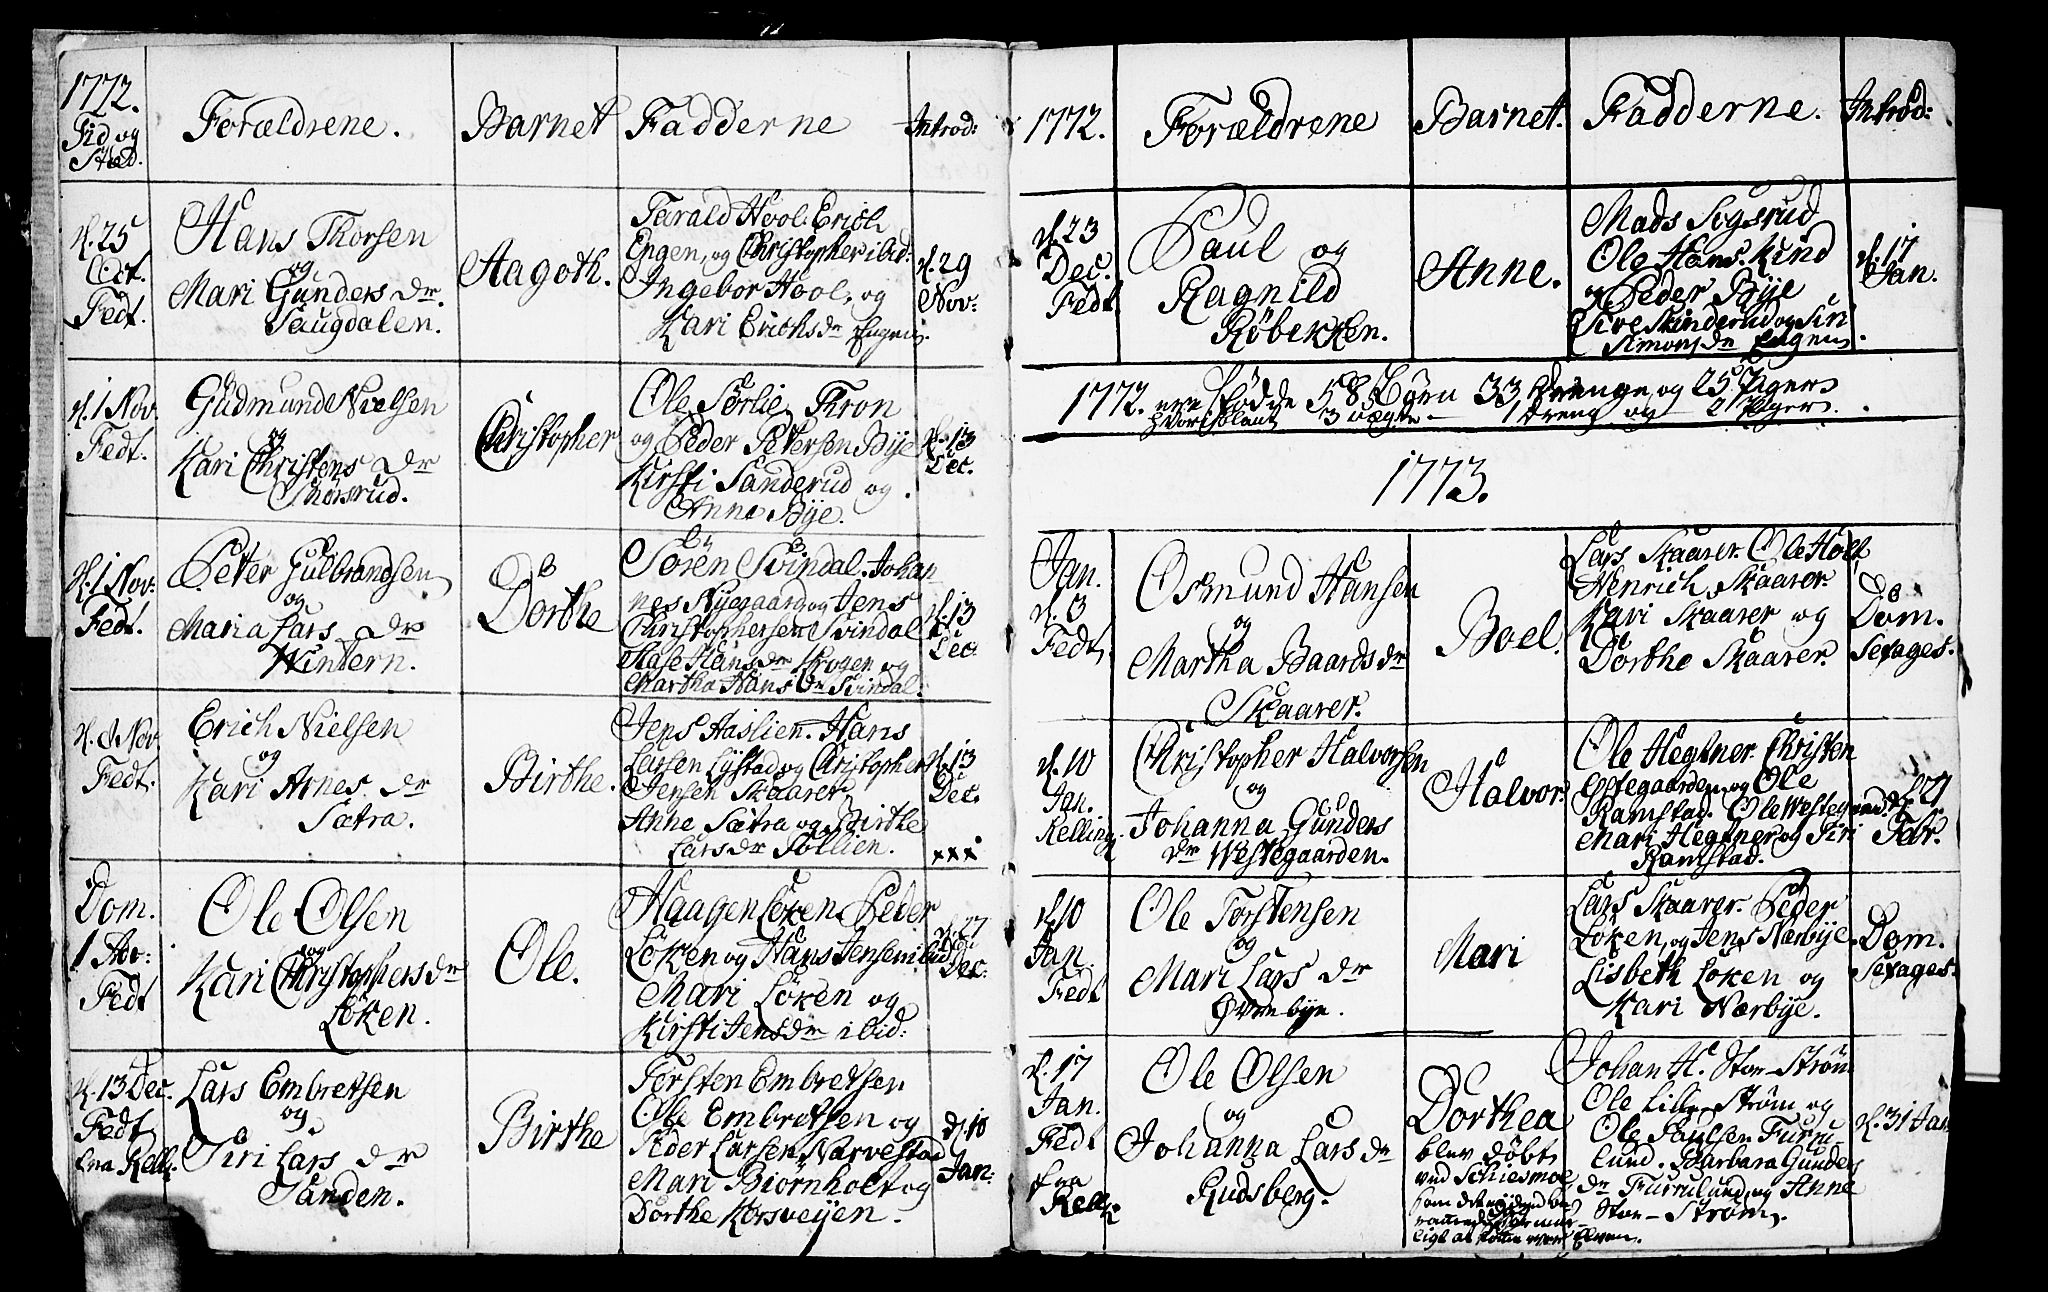 1772.
Tid og
Sted.
Forældrene.
Barnet
Fadderne
Introd:
d. 25
Oct.
Fedt.
Hans Thorsen
og
Mari Gunders dr
Saugdalen.
Aagoth.
Tarald Hool. Erich
Engen, og Christopher ibid:
Ingebor Hool, og
Kari Erichs dr Engen.
d. 29
Nov:
d. 1 Nov.
Fedt.
Gudmund Nielsen
og
Kari Christens dr
Christopher
Ole Sørlie, Thron
og Peder Petersen Bye
Kirsti Sanderud og
Anne Bye.
d. 13
Dec.
d. 1 Nov:
Fedt.
Peter Gulbrandsen
og
Maria Lars dr
Wintern.
Dorthe
Sören Svindal. Johan
nes Nyegaard og Jens
Christophersen Svindal
Aase Hans dr Krogen og
Martha Hans dr Svindal.
d. 13
Dec.
d. 8 Nov.
Fedt.
Erich Nielsen
og
Kari Arnes dr
Sætra.
Birthe.
Jens Haslien. Hans
Larsen Lystad og Christopher
Jensen Skaarer
Anne Sætra og Birthe
Lars dr Follien.
d. 13
Dec.
xxx
Dom.
1 Adv:
Fedt
Ole Olsen
og
Kari Christophers dr
Löken.
Ole.
Haagen Löken. Peder
Löken og Hans Jensen ibid
Mari Löken og
Kirsti Jens dr ibid:
d. 27
Dec:
d. 13 Dec.
Fedt
fra Rell.
Lars Embretsen
og
Siri Lars dr
Sanden.
Birthe
Torsten Embretsen
Ole Embretsen og
Peder Larsen Narvestad
Mari Biörnholt og
Dorthe Korsveyen.
d. 10
Jan:
1772.
Forældrene
Barnet.
Fadderne.
Introd:
d. 23
Dec.
Fedt
Paul og
Ragnild
Röbekken.
Anne.
Mads Sogsrud
Ole Hans. Kind
og Peder Bye
Sive Skinderud og Siri
Simons dr Engen.
d. 17
Jan.
1772. ere födde 58 Börn 33 Drenge og 25 Piger
hvoriblant 3 uægte. 1 Dreng og 2 Piger.
1773.
Jan.
d. 3
Fedt.
Osmund Hansen
og
Martha Baards dr
Skaarer.
Boel.
Lars Skaarer. Ole Holt
Henrich Skaarer.
Kari Skaarer og
Dorthe Skaarer.
Dom.
Sexages.
d. 10
Jan.
Relling
Christopher Halvorsen
og
Johanna Gunders
dr Westegaarden.
Halvor.
Ole Hegtner. Christen
Østegaarden og Ole
Ramstad. Ole Westegaard.
Mari Hegtner og Siri
Ramstad.
d. 27
Febr.
d. 10
Jan.
Fedt
Ole Torstensen
og
Mari Lars dr
Øvrebye.
Mari
Lars Skaarer. Peder
Löken, og Jens Nærbye.
Lisbeth Löken og
Kari Nærbye.
Dom.
Sexages.
d. 17
Jan.
Fedt
fra
Rell.
Ole Olsen
og
Johanna Lars dr
Rudsberg.
Dorthea
blev döbt
ved Schiesmoe
som
ligt at komme over Elven.
Johan H. Stor-Ström
Ole Lille Ström og
Ole Paulsen Furu-
lund. Barbara Gunders
dr Furrulund, og Anne
Stor-Ström.
d. 31 Jan